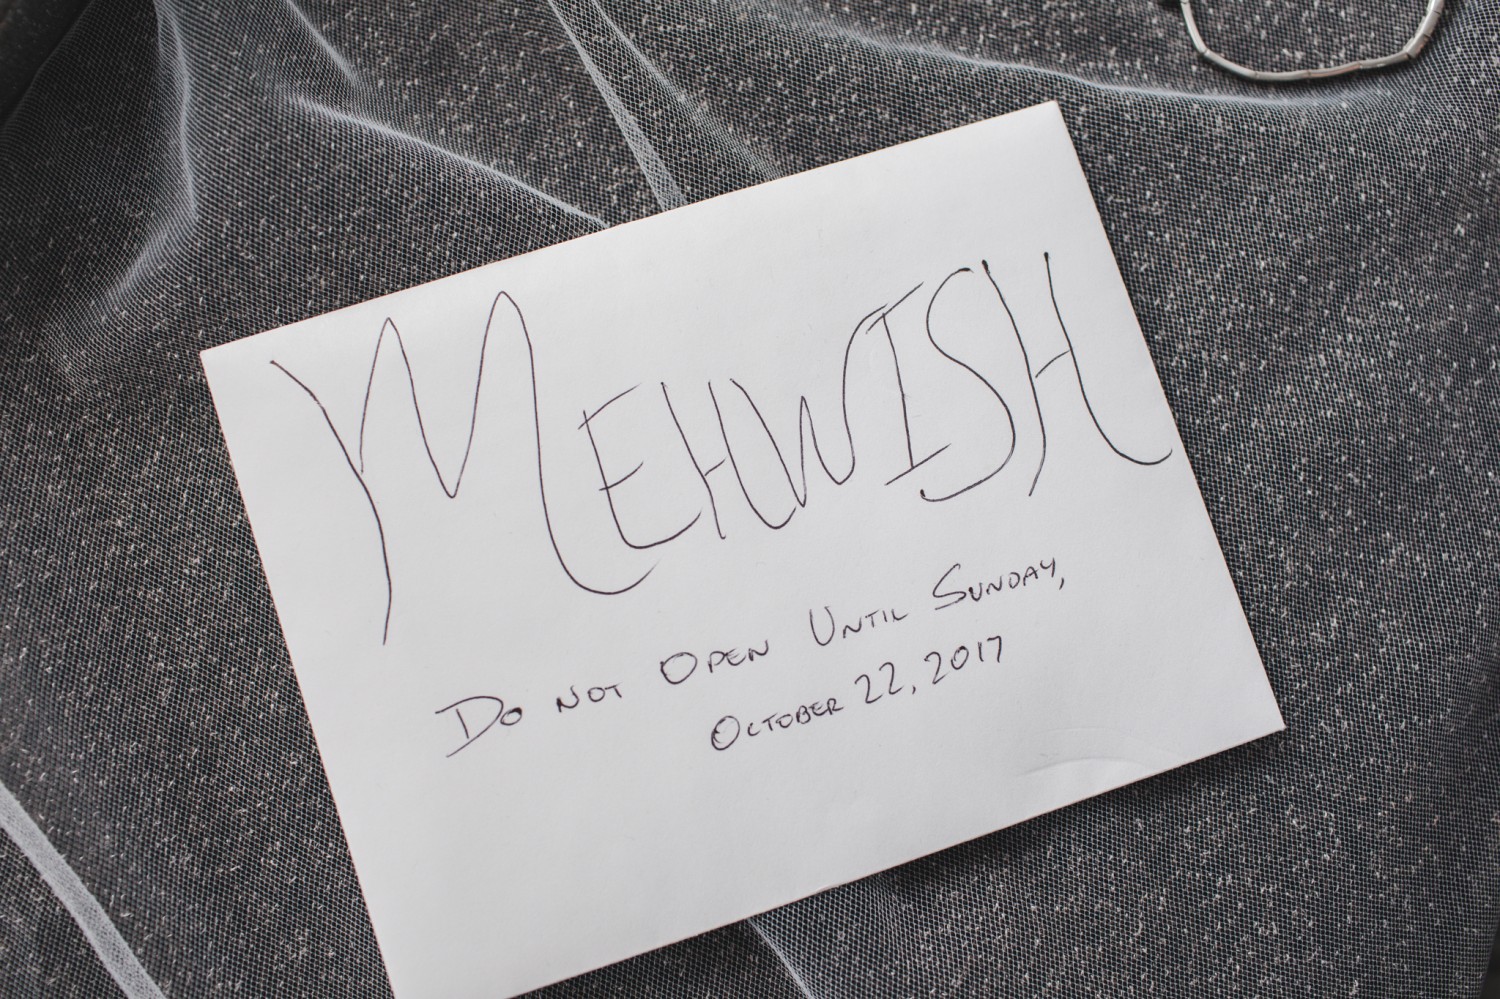 MEHWISH
DO NOT OPEN UNTIL SUNDAY,
OCTOBER 22, 2017